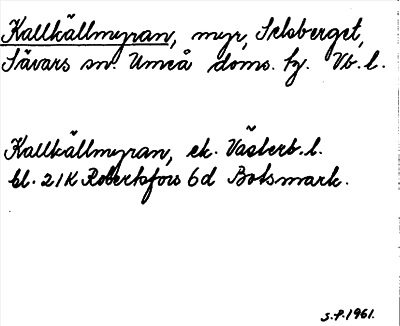 Kallkällmyran, myr, Selsberget,
Sävars sn. Umeå doms. hg. Vb. l.
Kallkällmyran, ek. Västerb. l.
bl. 21K Robertsfors 6d Botsmark.
S.P. 1961.